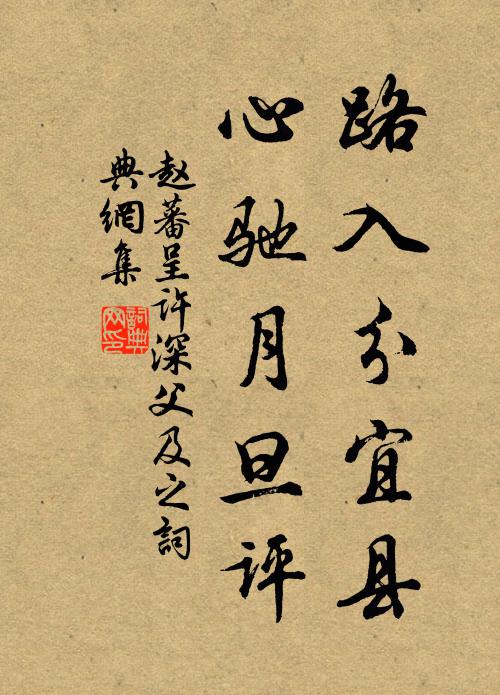 路入分宜县
心驰月旦评
赵蕃呈许深父及之词
典網集
詞典网印